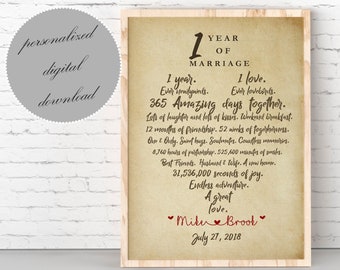 personalized
digital
download
1 YEAR
OF
MARRIAGE
1 year. 1 love.
Ever newlyweds. Ever lovebirds.
365 Amazing days together.
Lots of laughter and lots of kisses. Weekend breakfast.
12 months of friendship. 52 weeks of togetherness.
One & Only. Saint hugs. Soulmates. Countless memories.
8,760 hours of partnership. 525,600 minutes of smiles.
Best Friends. Husband & Wife. A new home.
31,536,000 seconds of joy.
Endless adventure.
A great
love.
Mike Brook
July 27, 2018